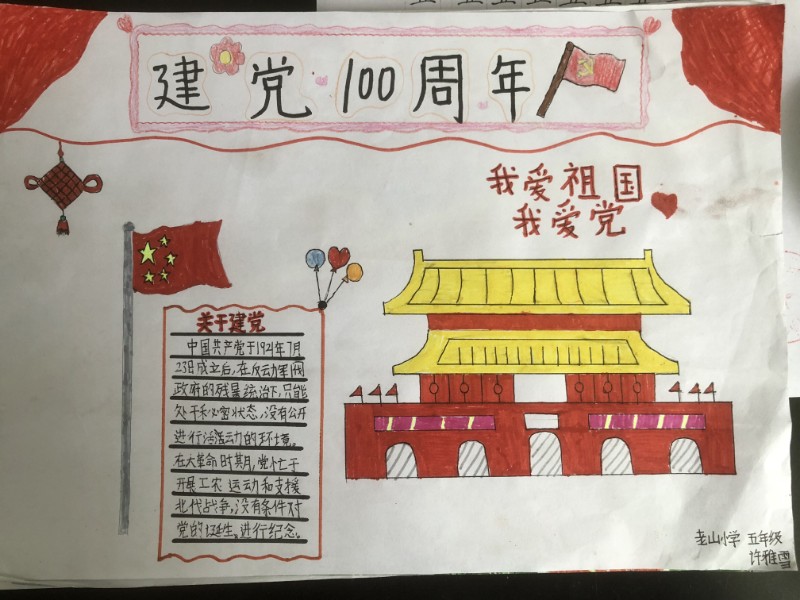 建党100周年
我爱祖国
我爱党
关于建党
中国共产党于1921年7月
23日成立后,在反动军阀
政府的残暴统治下,只能
处于秘密状态,没有公开
进行活动的环境。
在大革命时期,党忙于
开展工农运动和支援
北伐战争,没有条件对
党的诞生进行纪念。
老山小学 五年级
许雅雪